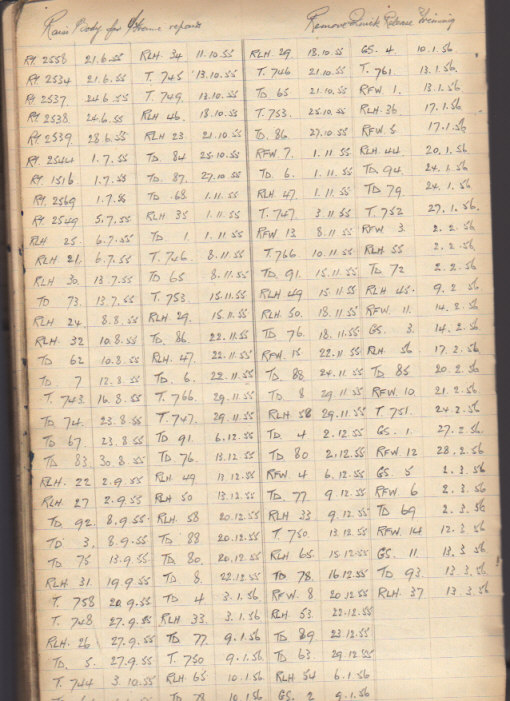 Raise Body for Frame repairs    Remove Quick Release Winning
RT. 2558 21.6.55 RLH. 34 11.10.55 RLH. 29. 18.10.55 GS. 4. 10.1.56
RT. 2534 21.6.55 T. 745 13.10.55 T. 746 21.10.55 T. 761. 13.1.56.
RT. 2537 24.6.55 T. 749. 13.10.55 TD 65 21.10.55 RFW. 1. 13.1.56.
RT. 2538 24.6.55 RLH 46. 18.10.55 T. 753. 25.10.55 RLH. 36 17.1.56
RT. 2539. 28.6.55 RLH 23. 21.10.55 TD. 86. 27.10.55 RFW. 5. 17.1.56
RT. 2544 1.7.55 TD. 84 25.10.55 RFW. 7. 1.11.55 RLH. 44. 20.1.56
RT. 1516 1.7.55 TD. 87. 27.10.55 TD. 6. 1.11.55 TD. 94. 24.1.56
RT. 2569 1.7.55 TD. 68. 1.11.55 RLH. 47. 1.11.55 TD 79. 24.1.56
RT. 2549 5.7.55 RLH 35 1.11.55 T. 747. 3.11.55 T. 752 27.1.56.
RLH 25. 6.7.55 TD 1. 1.11.55 RFW 13 8.11.55 RFW 3. 2.2.56
RLH 21. 6.7.55 T. 746. 8.11.55 T. 766. 10.11.55 RLH 55 2.2.56
RLH 30. 13.7.55 TD 65 8.11.55 TD. 91. 15.11.55 TD 72 2.2.56
TD 73. 13.7.55 T. 753 15.11.55 RLH 49 15.11.55 RLH 45. 9.2.56
RLH 24. 8.8.55 RLH. 29. 15.11.55 RLH. 50. 18.11.55 RFW. 11. 14.2.56
RLH. 32 10.8.55 TD. 86. 22.11.55 TD. 76. 18.11.55 GS. 3. 14.2.56
TD 62 10.8.55 RLH. 47. 22.11.55 RFW. 15 22.11.55 RLH. 56 17.2.56
TD. 7 12.8.55 TD. 6. 22.11.55 TD. 88 24.11.55 TD 85 20.2.56
T. 743. 16.8.55 T. 766. 29.11.55 TD. 8 29.11.55 RFW. 10 21.2.56
TD. 74. 23.8.55 T. 747. 29.11.55 RLH. 58 29.11.55 T. 751. 24.2.56
TD 67. 23.8.55 TD 91. 6.12.55 TD. 4 2.12.55 GS. 1. 27.2.56
TD 83. 30.8.55 TD. 76. 13.12.55 TD. 80 2.12.55 RFW. 12 28.2.56
RLH. 22 2.9.55 RLH. 49 13.12.55 RFW. 4 6.12.55 GS. 5 2.3.56
RLH. 27 2.9.55 RLH 50 13.12.55 TD. 77. 9.12.55 RFW 6 2.3.56
TD. 92. 8.9.55 RLH. 58 20.12.55 RLH 33 9.12.55 TD 69 2.3.56
TD 3. 8.9.55 TD 88 20.12.55 T. 750 13.12.55 RFW. 14 12.3.56
TD 75 13.9.55 TD. 80. 20.12.55 RLH 65 15.12.55 GS. 11 13.3.56
RLH. 31. 19.9.55 TD 8. 22.12.55 TD 78. 16.12.55 TD 93. 13.3.56
T. 758 20.9.55 TD 4. 3.1.56 RFW. 8 20.12.55 RLH. 37 13.3.56
T. 748 27.9.55 RLH 33. 3.1.56 RLH 53 22.12.55
RLH. 26 27.9.55 TD 77 9.1.56 TD 89 23.12.55
TD. 5. 27.9.55 T. 750 9.1.56 TD. 63. 29.12.55
T. 744 3.10.55 RLH. 65 10.1.56 RLH. 54 6.1.56
TD 78 10.1.56 GS. 2 9.1.56